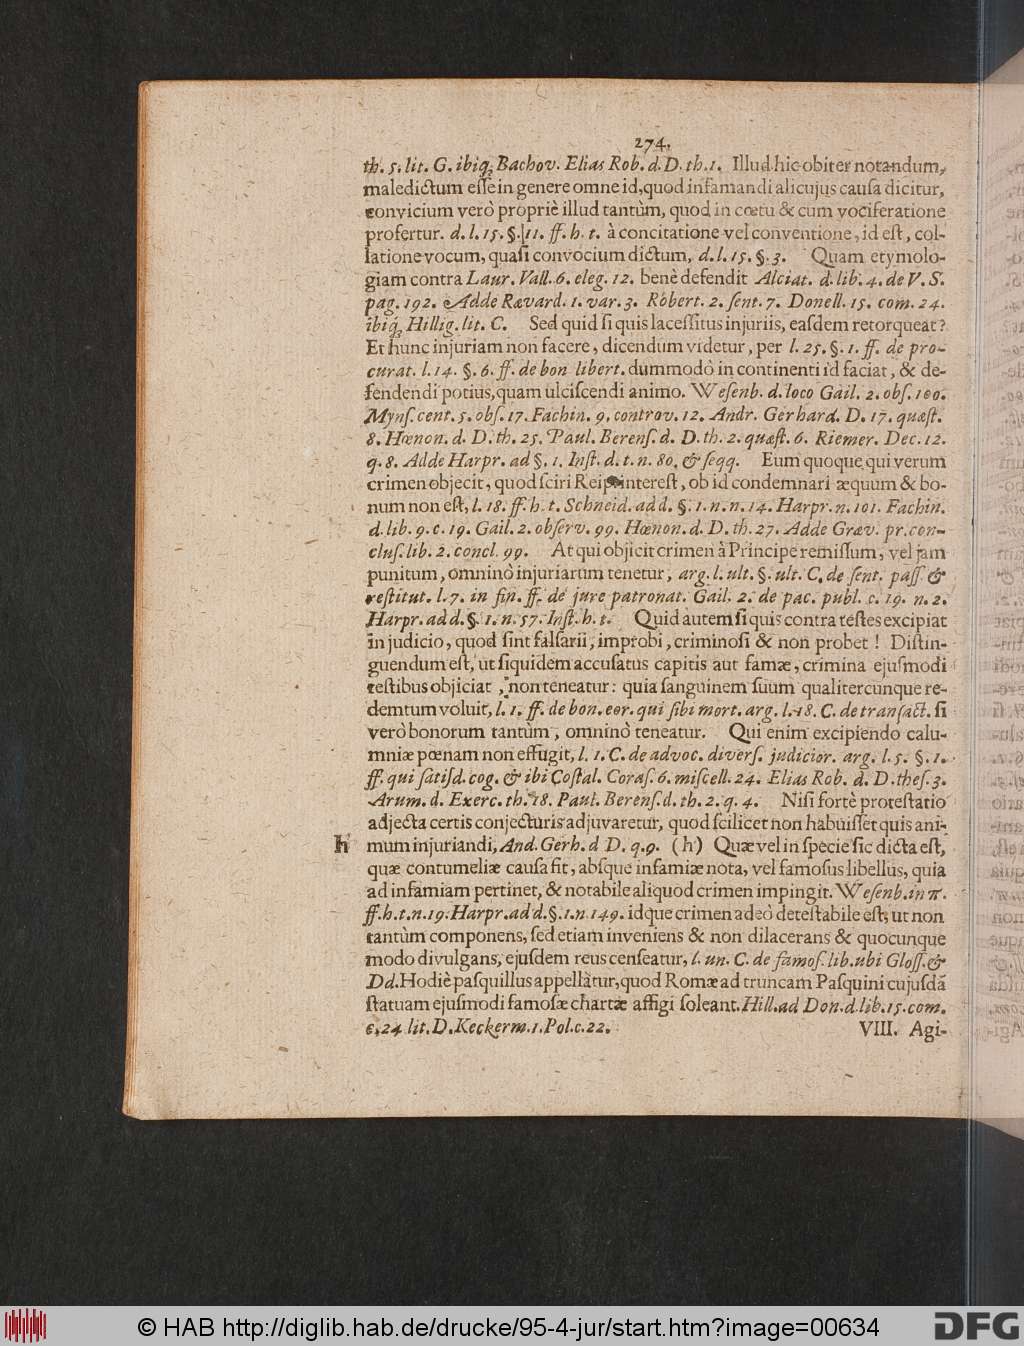 274.
th. 5. lit. G. ibiq; Bachov. Elias Rob. d. D. th. 1. Illud hic obiter notandum,
maledictum eſſe in genere omne id, quod infamandi alicujus cauſa dicitur,
convicium verò propriè illud tantùm, quod in cœtu & cum vociferatione
profertur. d. l. 15. §. 11. ff. h. t. à concitatione vel conventione, id eſt, col-
latione vocum, quaſi convocium dictum, d. l. 15. §. 3. Quam etymolo-
giam contra Laur. Vall. 6. eleg. 12. benè defendit Alciat. d. lib. 4. de V. S.
pag. 192. Adde Rævard. 1. var. 3. Robert. 2. ſent. 7. Donell. 15. com. 24.
ibiq; Hillig. lit. C. Sed quid ſi quis laceſſitus injuriis, eaſdem retorqueat?
Et hunc injuriam non facere, dicendum videtur, per l. 25. §. 1. ff. de pro-
curat. l. 14. §. 6. ff. de bon libert. dummodò in continenti id faciat, & de-
fendendi potius, quam ulciſcendi animo. Weſenb. d. loco Gail. 2. obſ. 100.
Mynſ. cent. 5. obſ. 17. Fachin. 9. controv. 12. Andr. Gerhard. D. 17. quæſt.
8. Hœnon. d. D. th. 25. Paul. Berenſ. d. D. th. 2. quæſt. 6. Riemer. Dec. 12.
q. 8. Adde Harpr. ad §. 1. Inſt. d. t. n. 80. & ſeqq. Eum quoque qui verum
crimen objecit, quod ſciri Reip. intereſt, ob id condemnari æquum & bo-
num non eſt, l. 18. ff. h. t. Schneid. ad d. §. 1. n. n. 14. Harpr. n. 101. Fachin.
d. lib. 9. c. 19. Gail. 2. obſerv. 99. Hœnon. d. D. th. 27. Adde Græv. pr. con-
cluſ. lib. 2. concl. 99. At qui objicit crimen à Principe remiſſum, vel jam
punitum, omninò injuriarum tenetur, arg. l. ult. §. ult. C. de ſent. paſſ. &
reſtitut. l. 7. in fin. ff. de jure patronat. Gail. 2. de pac. publ. c. 19. n. 2.
Harpr. ad d. §. 1. n. 57. Inſt. h. t. Quid autem ſi quis contra teſtes excipiat
in judicio, quod ſint falſarii, improbi, criminoſi & non probet! Diſtin-
guendum eſt, ut ſiquidem accuſatus capitis aut famæ, crimina ejuſmodi
teſtibus objiciat, non teneatur: quia ſanguinem ſuum qualitercunque re-
demtum voluit, l. 1. ff. de bon. eor. qui ſibi mort. arg. l. 18. C. de tranſact. ſi
verò bonorum tantùm, omninò teneatur. Qui enim excipiendo calu-
mniæ pœnam non effugit, l. 1. C. de advoc. diverſ. judicior. arg. l. 5. §. 1.
ff. qui ſatiſd. cog. & ibi Coſtal. Coraſ. 6. miſcell. 24. Elias Rob. d. D. theſ. 3.
Arum. d. Exerc. th. 18. Paul. Berenſ. d. th. 2. q. 4. Niſi fortè proteſtatio
adjecta certis conjecturis adjuvaretur, quod ſcilicet non habuiſſet quis ani-
h mum injuriandi, And. Gerh. d D. q. 9. (h) Quæ vel in ſpecie ſic dicta eſt,
quæ contumeliæ cauſa fit, abſque infamiæ nota, vel famoſus libellus, quia
ad infamiam pertinet, & notabile aliquod crimen impingit. Weſenb. in π.
ff. h. t. n. 19. Harpr. ad d. §. 1. n. 149. idque crimen adeò deteſtabile eſt, ut non
tantùm componens, ſed etiam inveniens & non dilacerans & quocunque
modo divulgans, ejuſdem reus cenſeatur, l. un. C. de famoſ. lib. ubi Gloſſ. &
Dd. Hodiè paſquillus appellatur, quod Romæ ad truncam Paſquini cujuſdã
ſtatuam ejuſmodi famoſæ chartæ affigi ſoleant. Hill. ad Don. d. lib. 15. com.
c. 24 lit. D. Keckerm. 1. Pol. c. 22.
VIII. Agi-
© HAB http://diglib.hab.de/drucke/95-4-jur/start.htm?image=00634
DFG